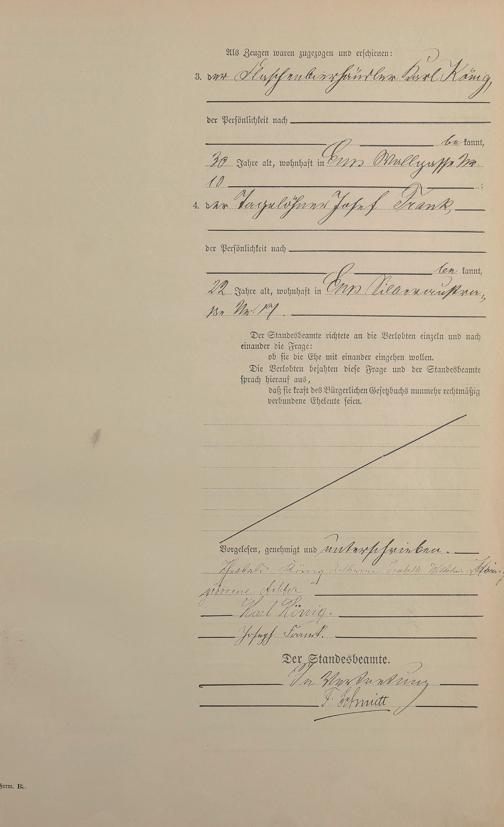 Als Zeugen waren zugezogen und erschienen:
3. der Flaschenbierhändler Karl König,
der Persönlichkeit nach
be kannt,
30 Jahre alt, wohnhaft in Ems Wallgasse Nr.
10
4. der Tagelöhner Josef Frank,
der Persönlichkeit nach
be kannt,
22 Jahre alt, wohnhaft in Ems Silberaustra-
ße Nr.
Der Standesbeamte richtete an die Verlobten einzeln und nach
einander die Frage:
ob sie die Ehe mit einander eingehen wollen.
Die Verlobten bejahten diese Frage und der Standesbeamte
sprach hierauf aus,
daß sie kraft des Bürgerlichen Gesetzbuchs nunmehr rechtmäßig
verbundene Eheleute seien.
Vorgelesen, genehmigt und unterschrieben.
König
geborene
Karl König.
Joseph Frank.
Der Standesbeamte.
In Vertretung
F. Schmitt
Form. B.